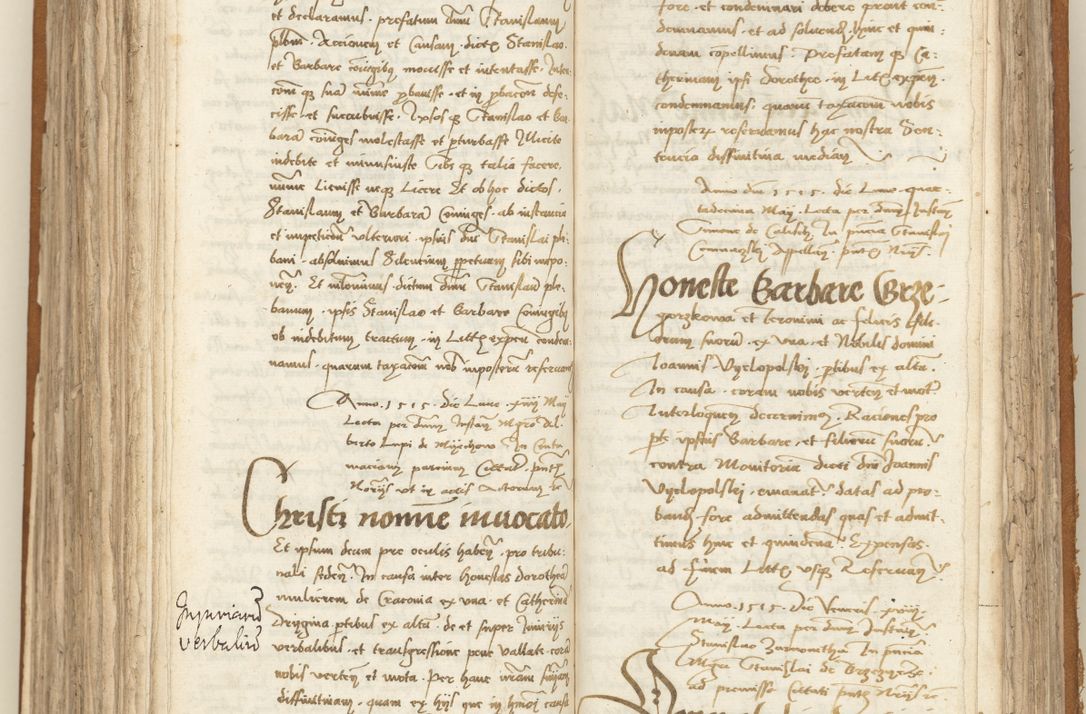 et declaramus prefatum dnm Stanislaum
plbm Accionem et Causam dicto Stanislao
et Barbare coniugibus movisse et intentasse
tom qz sua minime probavisse et in probacoe defe-
cisse et sucubuisse Ipsos qz Stanislao et Bar
bara coniuges molestasse et perturbasse Illicite
indebite et minusiuste Eis qz talia facere
minime Licuisse neqz Licere Et ob hoc dictos
Stanislaum et Barbara Coniuges ab instancia
et impeticoe ulteriori ipsius dni Stanislai ple-
bani absolvimus Silencium perpetuum sibi impo-
nen Et nihilominus dictum dnm Stanislaum ple-
banum ipsis Stanislao et Barbare Coniugibus
ob indebitum tractum in Litis expen condem
namus quarum taxacoem nobis imposterum reservam
Anno 1515 die Lune xiiij May
Lecta per dnm Instan Mgro Al-
berto Lupi de Myechow In Contu
maciam parcium Citatar pntibus
Noriis ut in actis
Christi nomine invocato
Et ipsum deum pre oculis haben pro tribu-
nali seden In causa inter honestas dorothea
mulierem de Cracovia ex una et Catherina
Drzygina partibus ex altera de et super Iniuriis
verbalibus et transgressione pene vallate cora
nobis verten et mota Per hanc nram sniam
diffinitivam quam ex hijs que in hmoi causa
Iniuriarum
verbalium
fore et condemnari debere prout con-
demnamus et ad solvend hinc et quin-
denam compellimus Prefatam qz Ca-
therinam ipsi dorothee in Litis expen
condemnamus quarum taxacoem nobis
imposterum reservamus hac nostra Sen-
tencia diffinitiva median
Anno dni 1515 die Lune quar
tadecima May Lecta per dnm Instan
Simone de In pncia Stanislai
pntibus Noriis
Honeste Barbare Grze-
gorzkowa et Ieronimi ac felicis filio-
rum suorum ex una et Nobilis domini
Ioannis Vyelopolskj partibus ex altera
In causa coram nobis verten et mota
Interloquen decernimus Raciones pro
pte ipsius Barbare et filiorum suorum
contra Monitoria dicti dni Joannis
Vyelopolskj emanata datas ad pro-
band fore admittendas quas et admit-
timus hinc et quindena Expensas
ad finem Litis usqz Reservan
Anno 1515 die Veneris xviij
May Lecta per dnm Instan
Stanislao In pncia
Mgri Stanislai de Brzezyny
ad premissa Citati pntibus Noriis